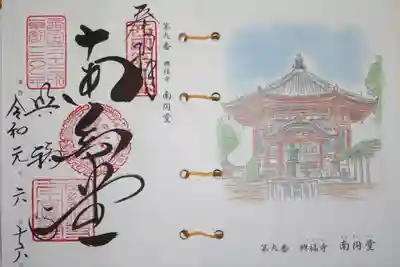 第九番 興福寺 南円堂
第九番 興福寺 南円堂
奉拝
南圓堂
興福寺
令和元年六月十六日